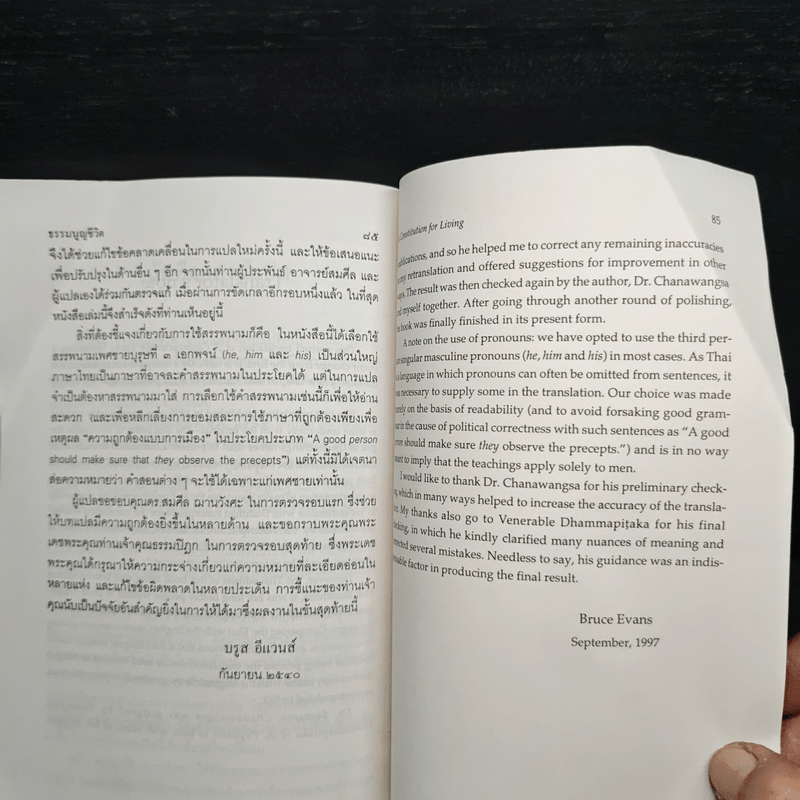 ธรรมนูญชีวิต ๘๕
จึงได้ช่วยแก้ไขข้อคลาดเคลื่อนในการแปลใหม่ครั้งนี้ และให้ข้อเสนอแนะ
เพื่อปรับปรุงในด้านอื่น ๆ อีก จากนั้นท่านผู้ประพันธ์ อาจารย์สมศีล และ
ผู้แปลเองได้ร่วมกันตรวจแก้ เมื่อผ่านการขัดเกลาอีกรอบหนึ่งแล้ว ในที่สุด
หนังสือเล่มนี้จึงสำเร็จดังที่ท่านเห็นอยู่นี้
สิ่งที่ต้องชี้แจงเกี่ยวกับการใช้สรรพนามก็คือ ในหนังสือนี้ได้เลือกใช้
สรรพนามเพศชายบุรุษที่ ๓ เอกพจน์ (he, him และ his) เป็นส่วนใหญ่
ภาษาไทยเป็นภาษาที่อาจละคำสรรพนามในประโยคได้ แต่ในการแปล
จำเป็นต้องหาสรรพนามมาใส่ การเลือกใช้คำสรรพนามเช่นนี้ก็เพื่อให้อ่าน
สะดวก (และเพื่อหลีกเลี่ยงการยอมสละการใช้ภาษาที่ถูกต้องเพียงเพื่อ
เหตุผล “ความถูกต้องแบบการเมือง” ในประโยคประเภท “A good person
should make sure that they observe the precepts”) แต่ทั้งนี้มิได้เจตนา
สื่อความหมายว่า คำสอนต่าง ๆ จะใช้ได้เฉพาะแก่เพศชายเท่านั้น
ผู้แปลขอขอบคุณดร.สมศีล ฌานวังศะ ในการตรวจรอบแรก ซึ่งช่วย
ให้บทแปลมีความถูกต้องยิ่งขึ้นในหลายด้าน และขอกราบพระคุณพระ
เดชพระคุณท่านเจ้าคุณธรรมปิฎก ในการตรวจรอบสุดท้าย ซึ่งพระเดช
พระคุณได้กรุณาให้ความกระจ่างเกี่ยวแก่ความหมายที่ละเอียดอ่อนใน
หลายแห่ง และแก้ไขข้อผิดพลาดในหลายประเด็น การชี้แนะของท่านเจ้า
คุณนับเป็นปัจจัยอันสำคัญยิ่งในการให้ได้มาซึ่งผลงานในขั้นสุดท้ายนี้
บรูส อีแวนส์
กันยายน ๒๕๔๐
Constitution for Living 85
and so he helped me to correct any remaining inaccuracies
my retranslation and offered suggestions for improvement in other
The result was then checked again by the author, Dr. Chanawangsa
myself together. After going through another round of polishing,
book was finally finished in its present form.
A note on the use of pronouns: we have opted to use the third per-
singular masculine pronouns (he, him and his) in most cases. As Thai
a language in which pronouns can often be omitted from sentences, it
necessary to supply some in the translation. Our choice was made
on the basis of readability (and to avoid forsaking good gram-
in the cause of political correctness with such sentences as “A good
should make sure they observe the precepts.”) and is in no way
to imply that the teachings apply solely to men.
I would like to thank Dr. Chanawangsa for his preliminary check-
which in many ways helped to increase the accuracy of the transla-
My thanks also go to Venerable Dhammapiṭaka for his final
in which he kindly clarified many nuances of meaning and
several mistakes. Needless to say, his guidance was an indis-
factor in producing the final result.
Bruce Evans
September, 1997